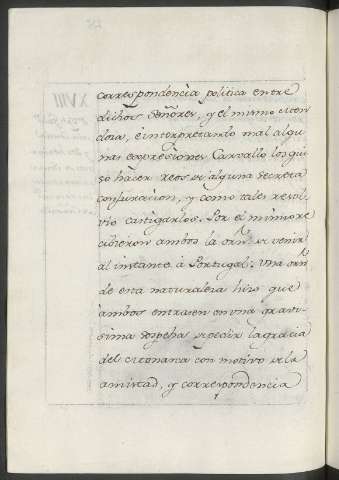 correspondencia politica entre
dichos Señores, y el mismo enten
diose, é interpretando mal algu
nas expresiones Carvallo los qui
so hacer reos de alguna secreta
conjuracion, y como tales resol
vio castigarlos. Por el mismo re
cibieron ambos la orn. de venir
al instante à Portugal. Una orn.
de esta naturaleza hizo que
ambos entrasen en una gravi
sima sospecha de pedir la gracia
del Monarca con motivo de la
amistad, y correspondencia